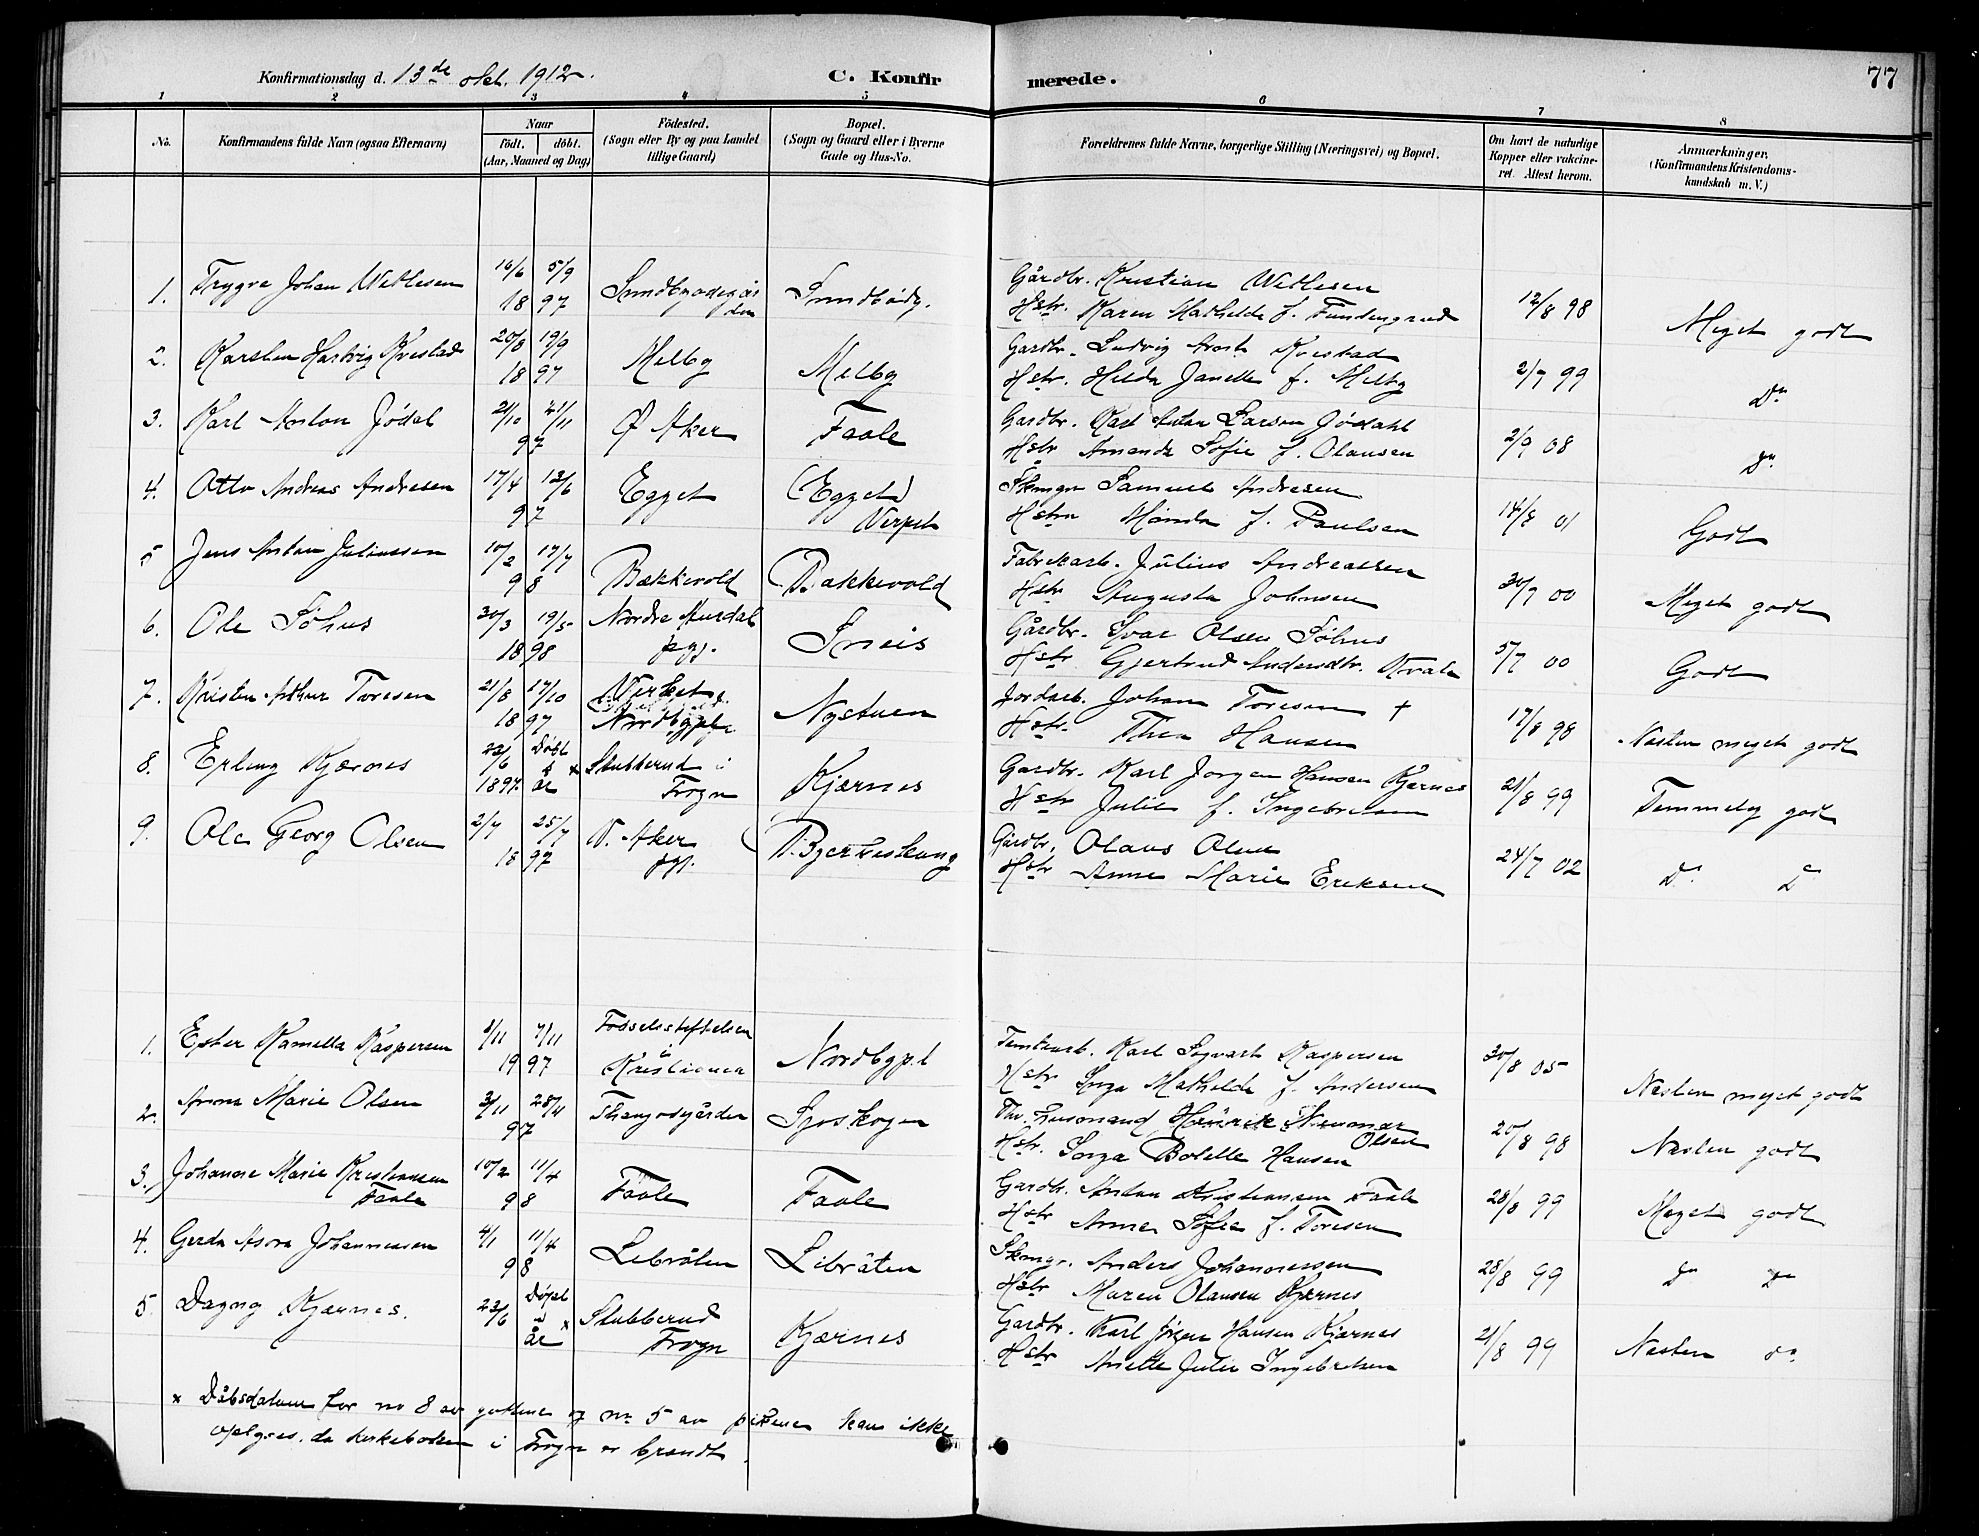 Konfirmationsdag d. 13de okt. 1912. C. Konfirmerede. 77
1 2 3 4 5 6 7 8
No. Konfirmandens fulde Navn (ogsaa Efternavn) Naar födt. döbt. (Aar, Maaned og Dag) Födested. (Sogn eller By og paa Landet tillige Gaard) Bopæl. (Sogn og Gaard eller i Byerne Gade og Hus-No. Forældrenes fulde Navne, borgerlige Stilling (Næringsvei) og Bopæl. Om havt de naturlige Kopper eller vakcineret. Attest herom. Anmærkninger. (Konfirmandens Kristendomskundskab m. V.)
1. Trygve Johan Wetlesen 16/6 5/9 1897 Sundbyødegården Sundbödg. Gårdbr. Kristian Wetlesen
Hstr. Karen Mathilde f. Fundengrud 12/8 98 Meget godt
2. Karsten Hartvig Krestad 20/8 19/9 1897 Melby Melby Gardbr. Ludvig Krestad
Hstr. Hilda Janette f. Melby 2/7 99 Do
3. Karl Anton Jödal 21/10 21/11 97 Ø Aker Faale Gardbr. Karl Anton Larsen Jödahl
Hstr Amanda Sofie f. Olausen 2/9 08 do
4. Otto Andreas Andresen 17/4 12/6 97 Egget (Egget) Verpet Skmgr Samuel Andresen
Hstr Manda f. Paulsen 14/8 01 Godt
5 Jens Anton Juliussen 10/2 17/7 98 Bækkevold Bakkevold Fabrikarb. Julius Andreassen
Hstr Augusta Johnsen 30/7 00 Meget godt
6. Ole Söhus 30/3 19/5 1898 Nordre Aurdal pgj. Sneis Gårdbr. Ivar Olsen Söhus
Hstr Gjertrud Andersdtr. Kvale 5/7 00 Godt
7. Kristen Arthur Toresen 21/8 17/10 1897 Verket Nordbypl Nystuen Jordarb. Johan Toresen †
Hstr. Thea Hansen 17/8 98 Næsten meget godt
8. Erling Kjærnes 23/6 1897 Döbt s. år × Stubberud i Frogn Kjærnes Gardbr. Karl Jorgen Hansen Kjærnes
Hstr Julie f. Ingebretsen 21/8 99 Temmelig godt
9. Ole Georg Olsen 2/7 25/7 1897 V. Aker pgj. Bjerkeskaug Gårdbr. Olaus Olsen
Hstr Anne Marie Eriksen 24/7 02 Do Do
1. Ester Kamella Kaspersen 3/11 7/11 1997 Födselsstiftelsen Kristiania Nordbypl Tomtearb. Karl Sigvart Kaspersen
Hstr Inga Mathilde f. Andersen 30/8 05 Næsten meget godt
2. Anna Marie Olsen 3/11 28/11 97 Thangodegården Sjöskogen Thv. husmand Henrik Neumar Olsen
Hstr. Inga Bolette Hansen 20/8 98 Næsten godt
3. Johanne Marie Kristiansen Faale 10/2 11/4 98 Faale Faale Gardbr. Anton Kristiansen Faale
Hstr Anne Sofie f. Toresen 28/8 99 Meget godt
4. Gerda Asora Johannessen 4/1 11/4 98 Lebråten Libråten Skmgr. Anders Johannessen
Hstr Maren Olausen Kjærnes 28/8 99 do do
5. Dagny Kjærnes. 23/6 Döpt s. år × Stubberud Frogn Kjærnes Gardbr. Karl Jörgen Hansen Kjærnes
Hstr Anette Julie Ingebretsen 21/8 99 Næsten do.
× Dåbsdatum for no 8 av guttene og no 5 av pikene kan ikke
opgives, da kirkeboken i Frogn er brændt.